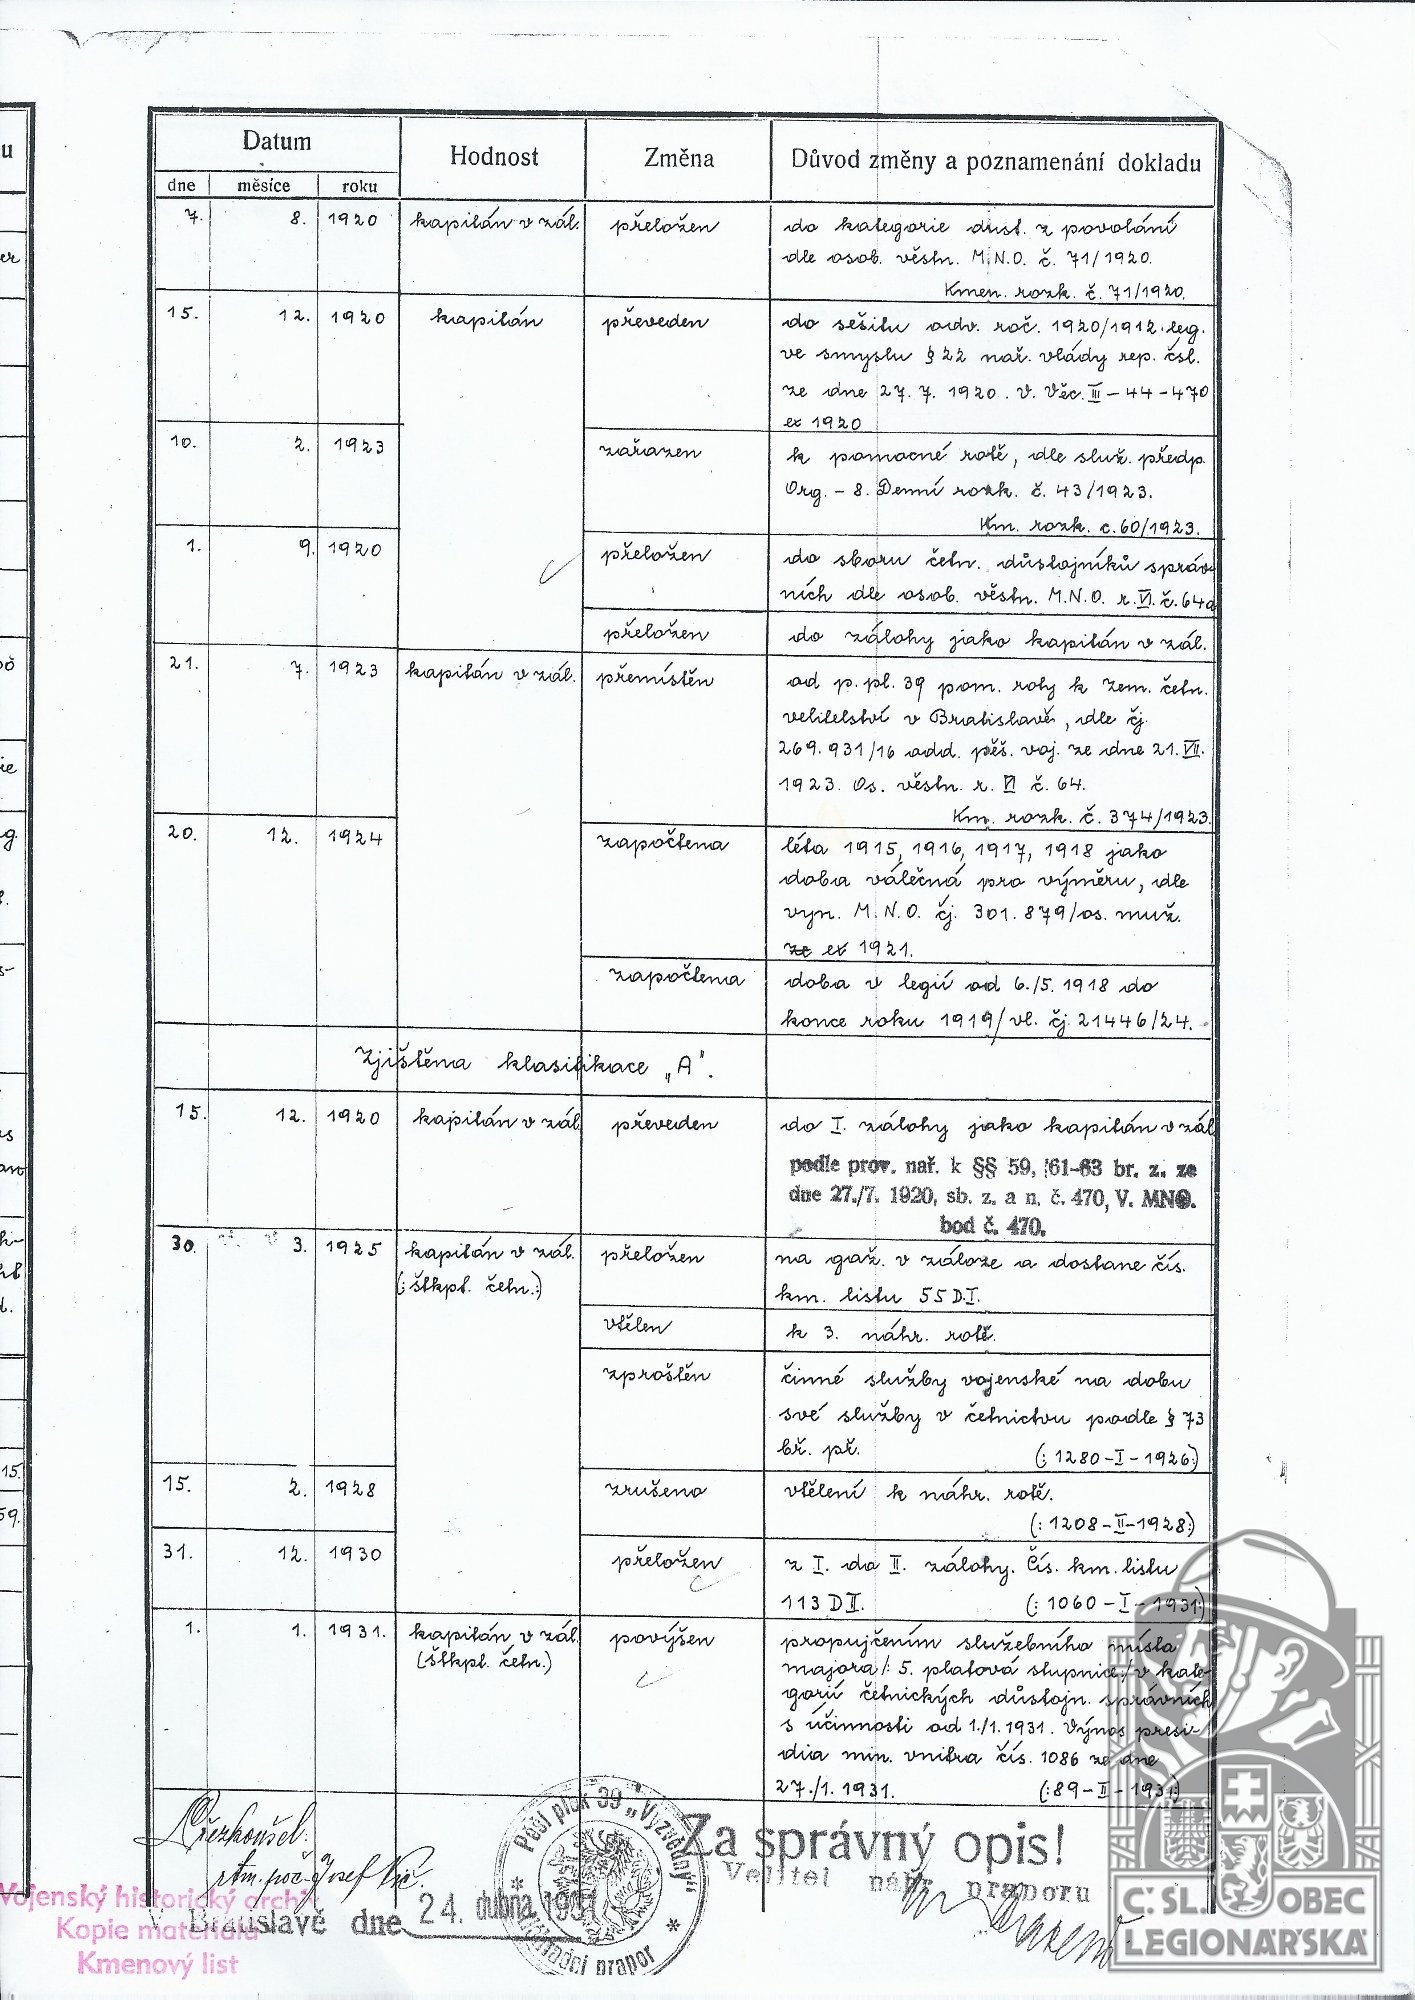 Datum
Hodnost
Změna
Důvod změny a poznamenání dokladu
dne měsíce roku
7. 8. 1920 kapitán v zál. přeložen do kategorie důst. z povolání
dle osob. věstn. M.N.O. č. 71/1920.
Kmen. rozk. č. 71/1920.
15. 12. 1920 kapitán převeden do sešitu odv. roč. 1920/1912. leg.
ve smyslu § 22 nař. vlády rep. čsl.
ze dne 27. 7. 1920. V. Věc. III – 44 – 470
ex 1920
10. 2. 1923 zařazen k pomocné rotě, dle služ. předp.
Org. – 8. Denní rozk. č. 43/1923.
Km. rozk. c. 60/1923.
1. 9. 1920 přeložen do sboru četn. důstojníků správ-
ních dle osob. věstn. M.N.O. r. VI. č. 64a
přeložen do zálohy jako kapitán v zál.
21. 7. 1923 kapitán v zál. přemístěn od p. pl. 39 pom. roty k zem. četn.
velitelství v Bratislavě, dle čj.
269.931/16 odd. pěš. voj. ze dne 21. VII.
1923. Os. věstn. r. VI č. 64.
Km. rozk. č. 374/1923.
20. 12. 1924 započtena léta 1915, 1916, 1917, 1918 jako
doba válečná pro výměru, dle
vyn. M.N.O. čj. 301.879/os. muž.
ze ex 1921.
započtena doba v legii od 6./5. 1918 do
konce roku 1919/ vl. čj. 21446/24.
Zjištěna klasifikace „A".
15. 12. 1920 kapitán v zál. převeden do I. zálohy jako kapitán v zál
podle prov. nař. k §§ 59, 61-63 br. z. ze
dne 27./7. 1920, sb. z. a n. č. 470, V. MNO.
bod č. 470.
30. 3. 1925 kapitán v zál. přeložen na gaž. v záloze a dostane čís.
(: štkpt. četn. :) km. listu 55 D.I.
vtělen k 3. náhr. rotě.
zproštěn činné služby vojenské na dobu
své služby v četnictvu podle § 73
bř. př. (: 1280-I-1926:)
15. 2. 1928 zrušeno vtělení k náhr. rotě.
(: 1208-II-1928:)
31. 12. 1930 přeložen z I. do II. zálohy. Čís. km. listu
113 D II. (: 1060-I-1931:)
1. 1. 1931. kapitán v zál. povýšen propujčením služebního místa
(štkpt. četn.) majora /: 5. platová stupnice :/ v kate-
gorii četnických důstojn. správních
s účinností od 1./1. 1931. Výnos presi-
dia min. vnitra čís. 1086 ze dne
27./1. 1931. (: 89-II-1931:)
Pěší pluk 39 „Výzvědný"
Náhradní prapor
Za správný opis!
Velitel náhr. praporu
V Bratislavě dne 24. dubna 1931
Vojenský historický archiv
Kopie materiálu
Kmenový list
ČSL. OBEC
LEGIONÁŘSKÁ